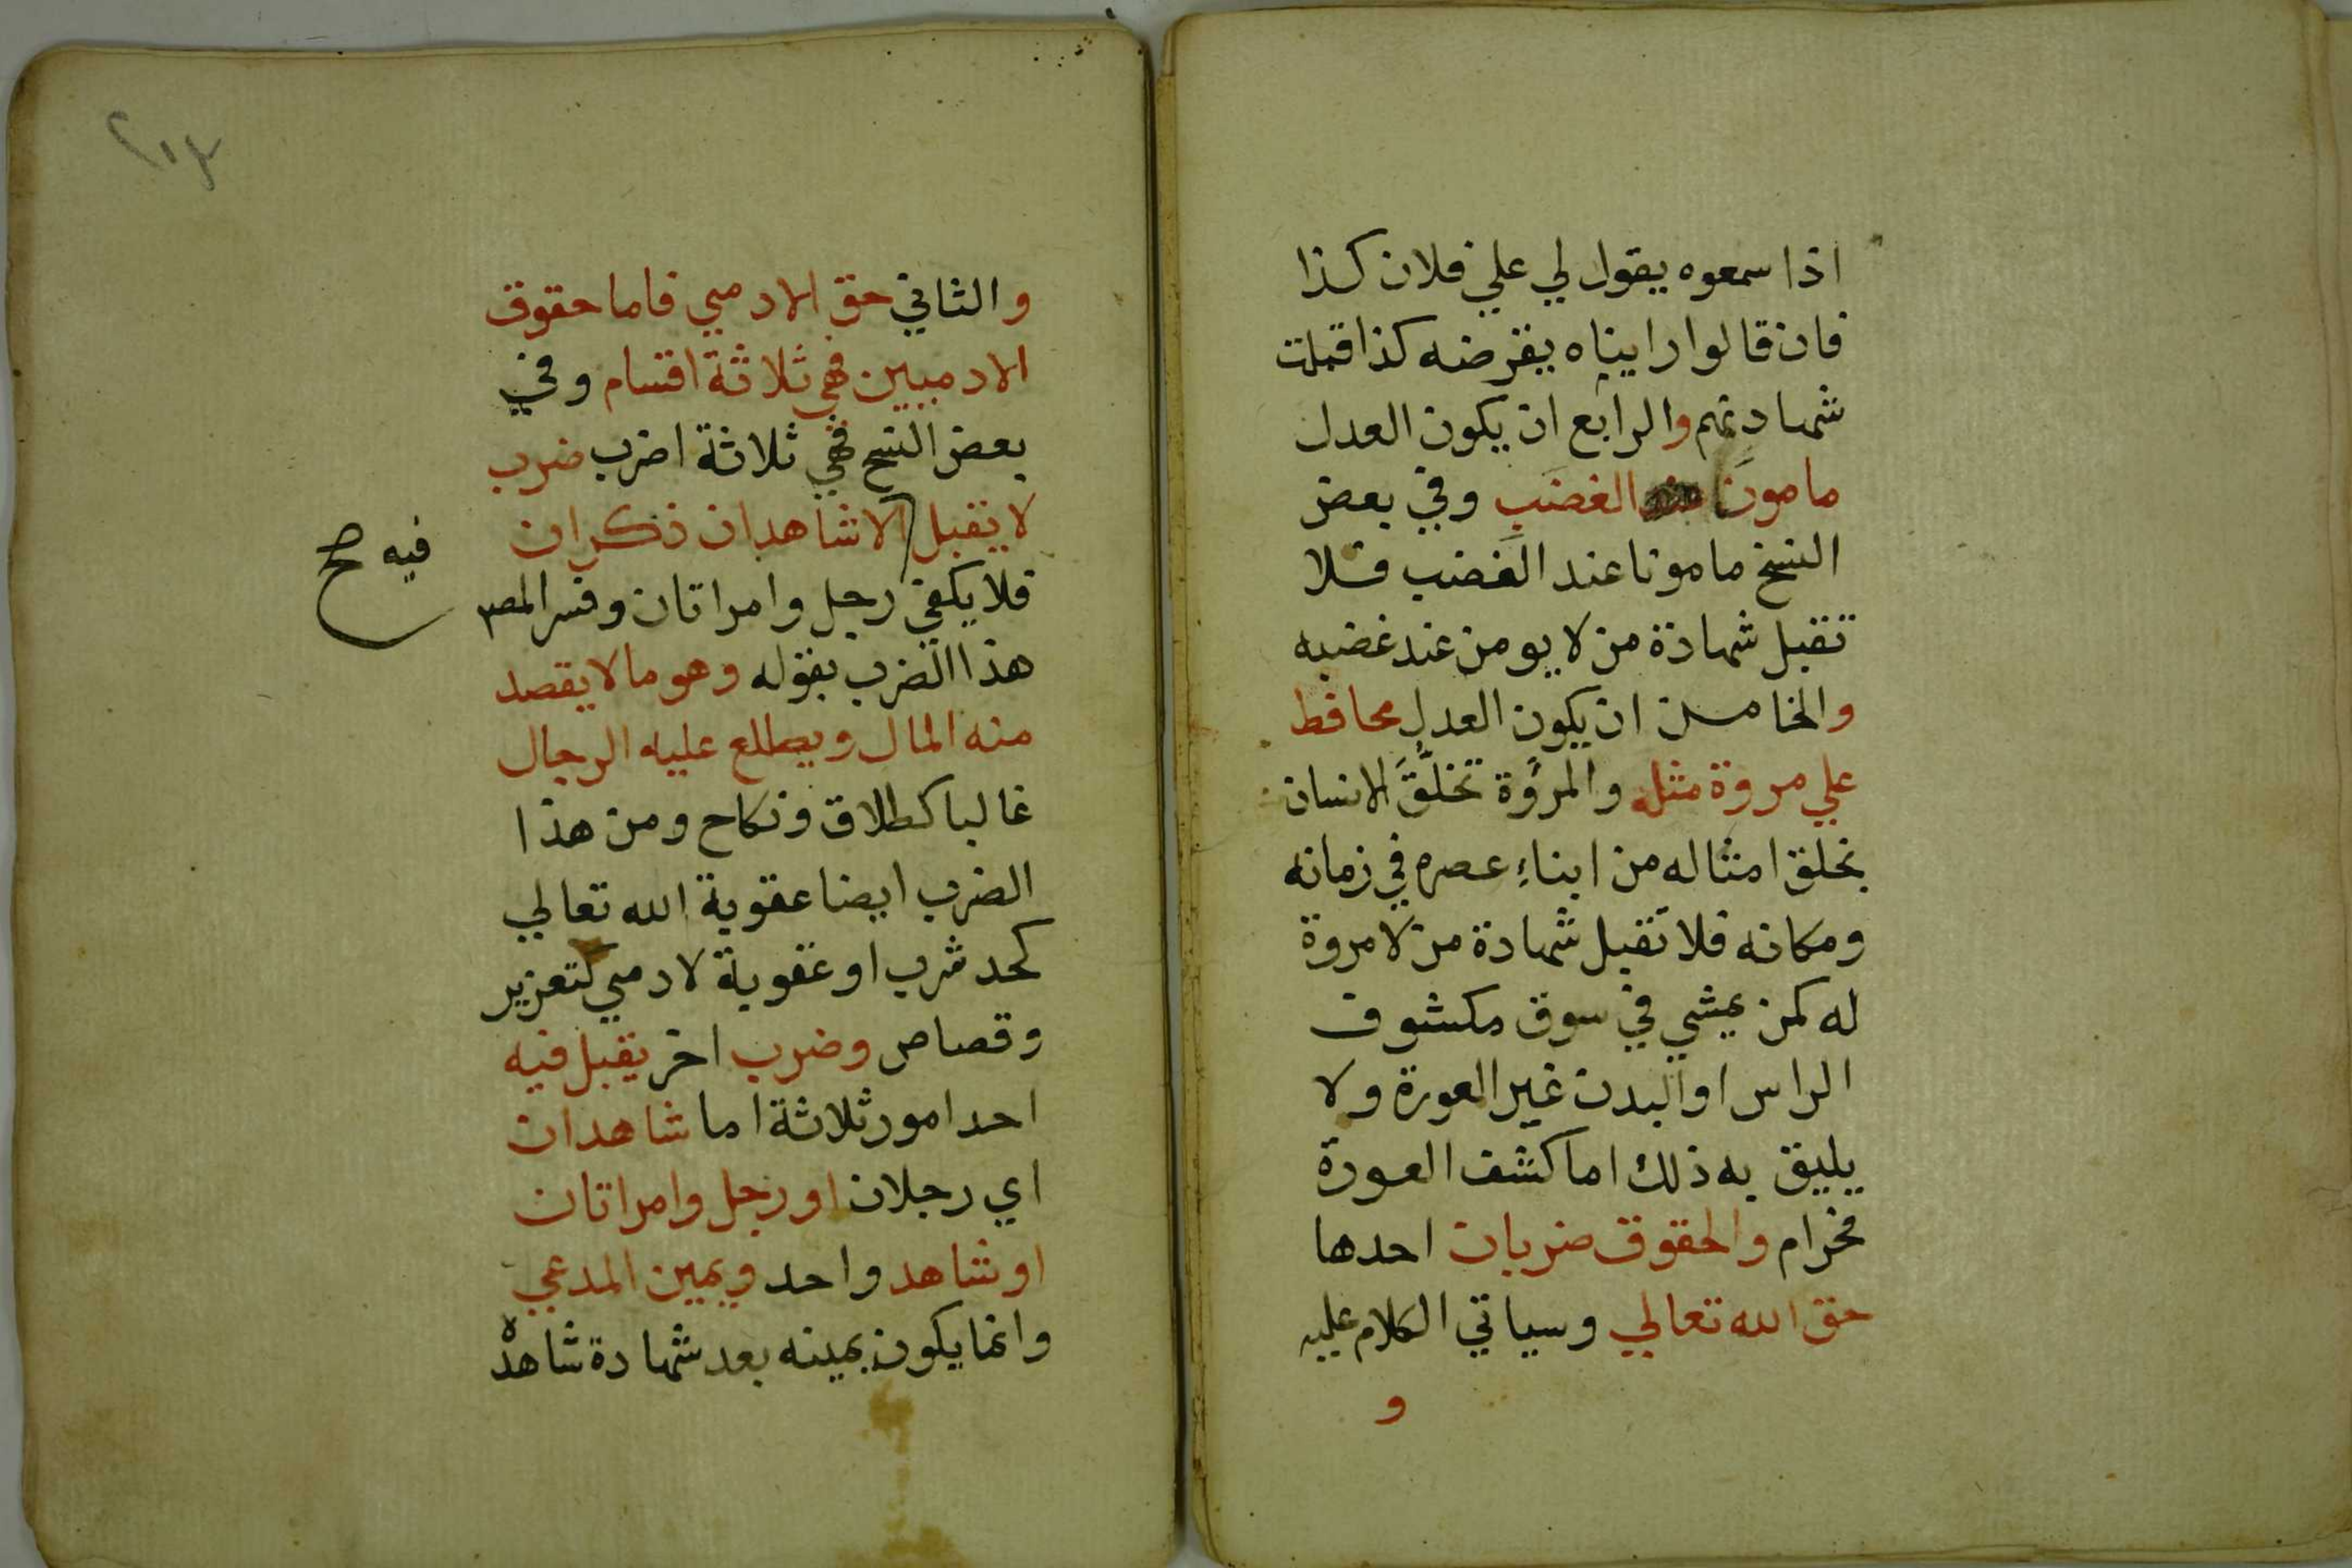 اذا سمعوه يقول لي علي فلان كذا
فان قالوا رايناه يقرضه كذا قبلت
شهادتهم والرابع ان يكون العدل
مامون الغضب وفي بعض
النسخ مامونا عند الغضب فلا
تقبل شهادة من لا يومن عند غضبه
والخامس ان يكون العدل محافظ
علي مروة مثله والمرؤة تخلّق الانسان
بخلق امثاله من ابناء عصره في زمانه
ومكانه فلا تقبل شهادة من لا مروة
له كمن يمشي في سوق مكشوف
الراس او البدن غير العورة ولا
يليق به ذلك اما كشف العورة
فحرام والحقوق ضربان احدها
حق الله تعالي وسياتي الكلام عليه
و
٢٠٣
والثاني حق الادمي فاما حقوق
الادميين فهي ثلاثة اقسام وفي
بعض النسخ فهي ثلاثة اضرب ضرب
لا يقبل الا شاهدان ذكران
فيه صح
فلا يكفي رجل وامراتان وفسر المصـ
هذا الضرب بقوله وهو ما لا يقصد
منه المال ويطلع عليه الرجال
غالبا كطلاق ونكاح ومن هذا
الضرب ايضا عقوبة الله تعالي
كحد شرب او عقوبة لادمي كتعزير
وقصاص وضرب اخر يقبل فيه
احد امور ثلاثة اما شاهدان
اي رجلان او رجل وامراتان
او شاهد واحد ويمين المدعي
وانما يكون يمينه بعد شهادة شاهده